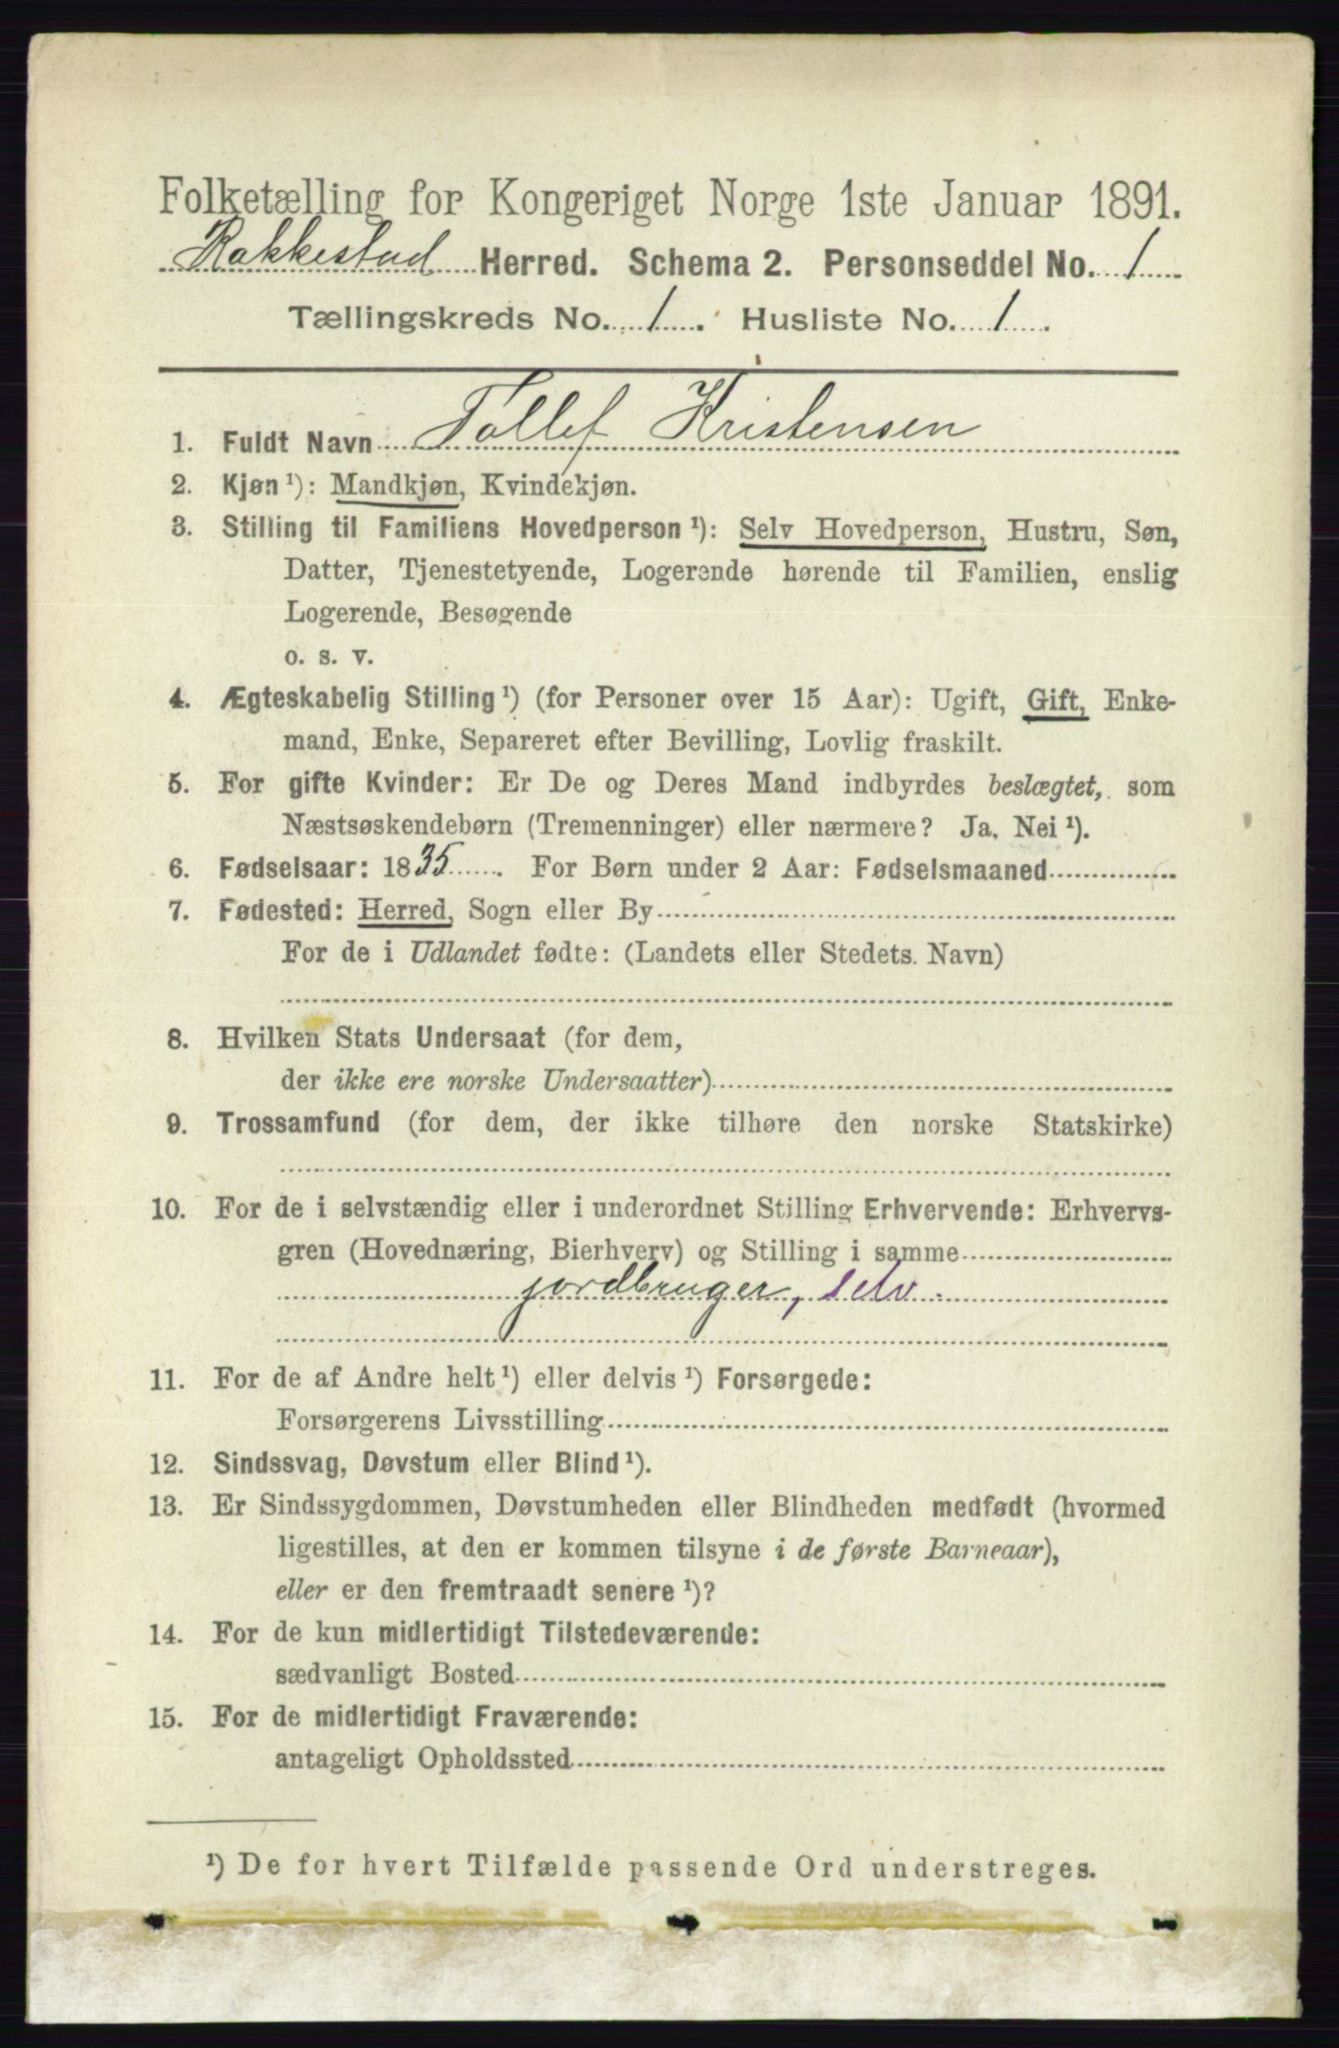 Folketælling for Kongeriget Norge 1ste Januar 1891.
Rakkestad Herred. Schema 2. Personseddel No. 1
Tællingskreds No. 1. Husliste No. 1.
1. Fuldt Navn Tollef Kristensen
2. Kjøn¹): Mandkjøn, Kvindekjøn.
3. Stilling til Familiens Hovedperson¹): Selv Hovedperson, Hustru, Søn,
Datter, Tjenestetyende, Logerende hørende til Familien, enslig
Logerende, Besøgende
o. s. v.
4. Ægteskabelig Stilling¹) (for Personer over 15 Aar): Ugift, Gift, Enke-
mand, Enke, Separeret efter Bevilling, Lovlig fraskilt.
5. For gifte Kvinder: Er De og Deres Mand indbyrdes beslægtet, som
Næstsøskendebørn (Tremenninger) eller nærmere? Ja, Nei¹).
6. Fødselsaar: 1835. For Børn under 2 Aar: Fødselsmaaned
7. Fødested: Herred, Sogn eller By
For de i Udlandet fødte: (Landets eller Stedets Navn)
8. Hvilken Stats Undersaat (for dem,
der ikke ere norske Undersaatter)
9. Trossamfund (for dem, der ikke tilhøre den norske Statskirke)
10. For de i selvstændig eller i underordnet Stilling Erhvervende: Erhvervs-
gren (Hovednæring, Bierhverv) og Stilling i samme
jordbruger, selv.
11. For de af Andre helt¹) eller delvis¹) Forsørgede:
Forsørgerens Livsstilling
12. Sindssvag, Døvstum eller Blind¹).
13. Er Sindssygdommen, Døvstumheden eller Blindheden medfødt (hvormed
ligestilles, at den er kommen tilsyne i de første Barneaar),
eller er den fremtraadt senere¹)?
14. For de kun midlertidigt Tilstedeværende:
sædvanligt Bosted
15. For de midlertidigt Fraværende:
antageligt Opholdssted
¹) De for hvert Tilfælde passende Ord understreges.